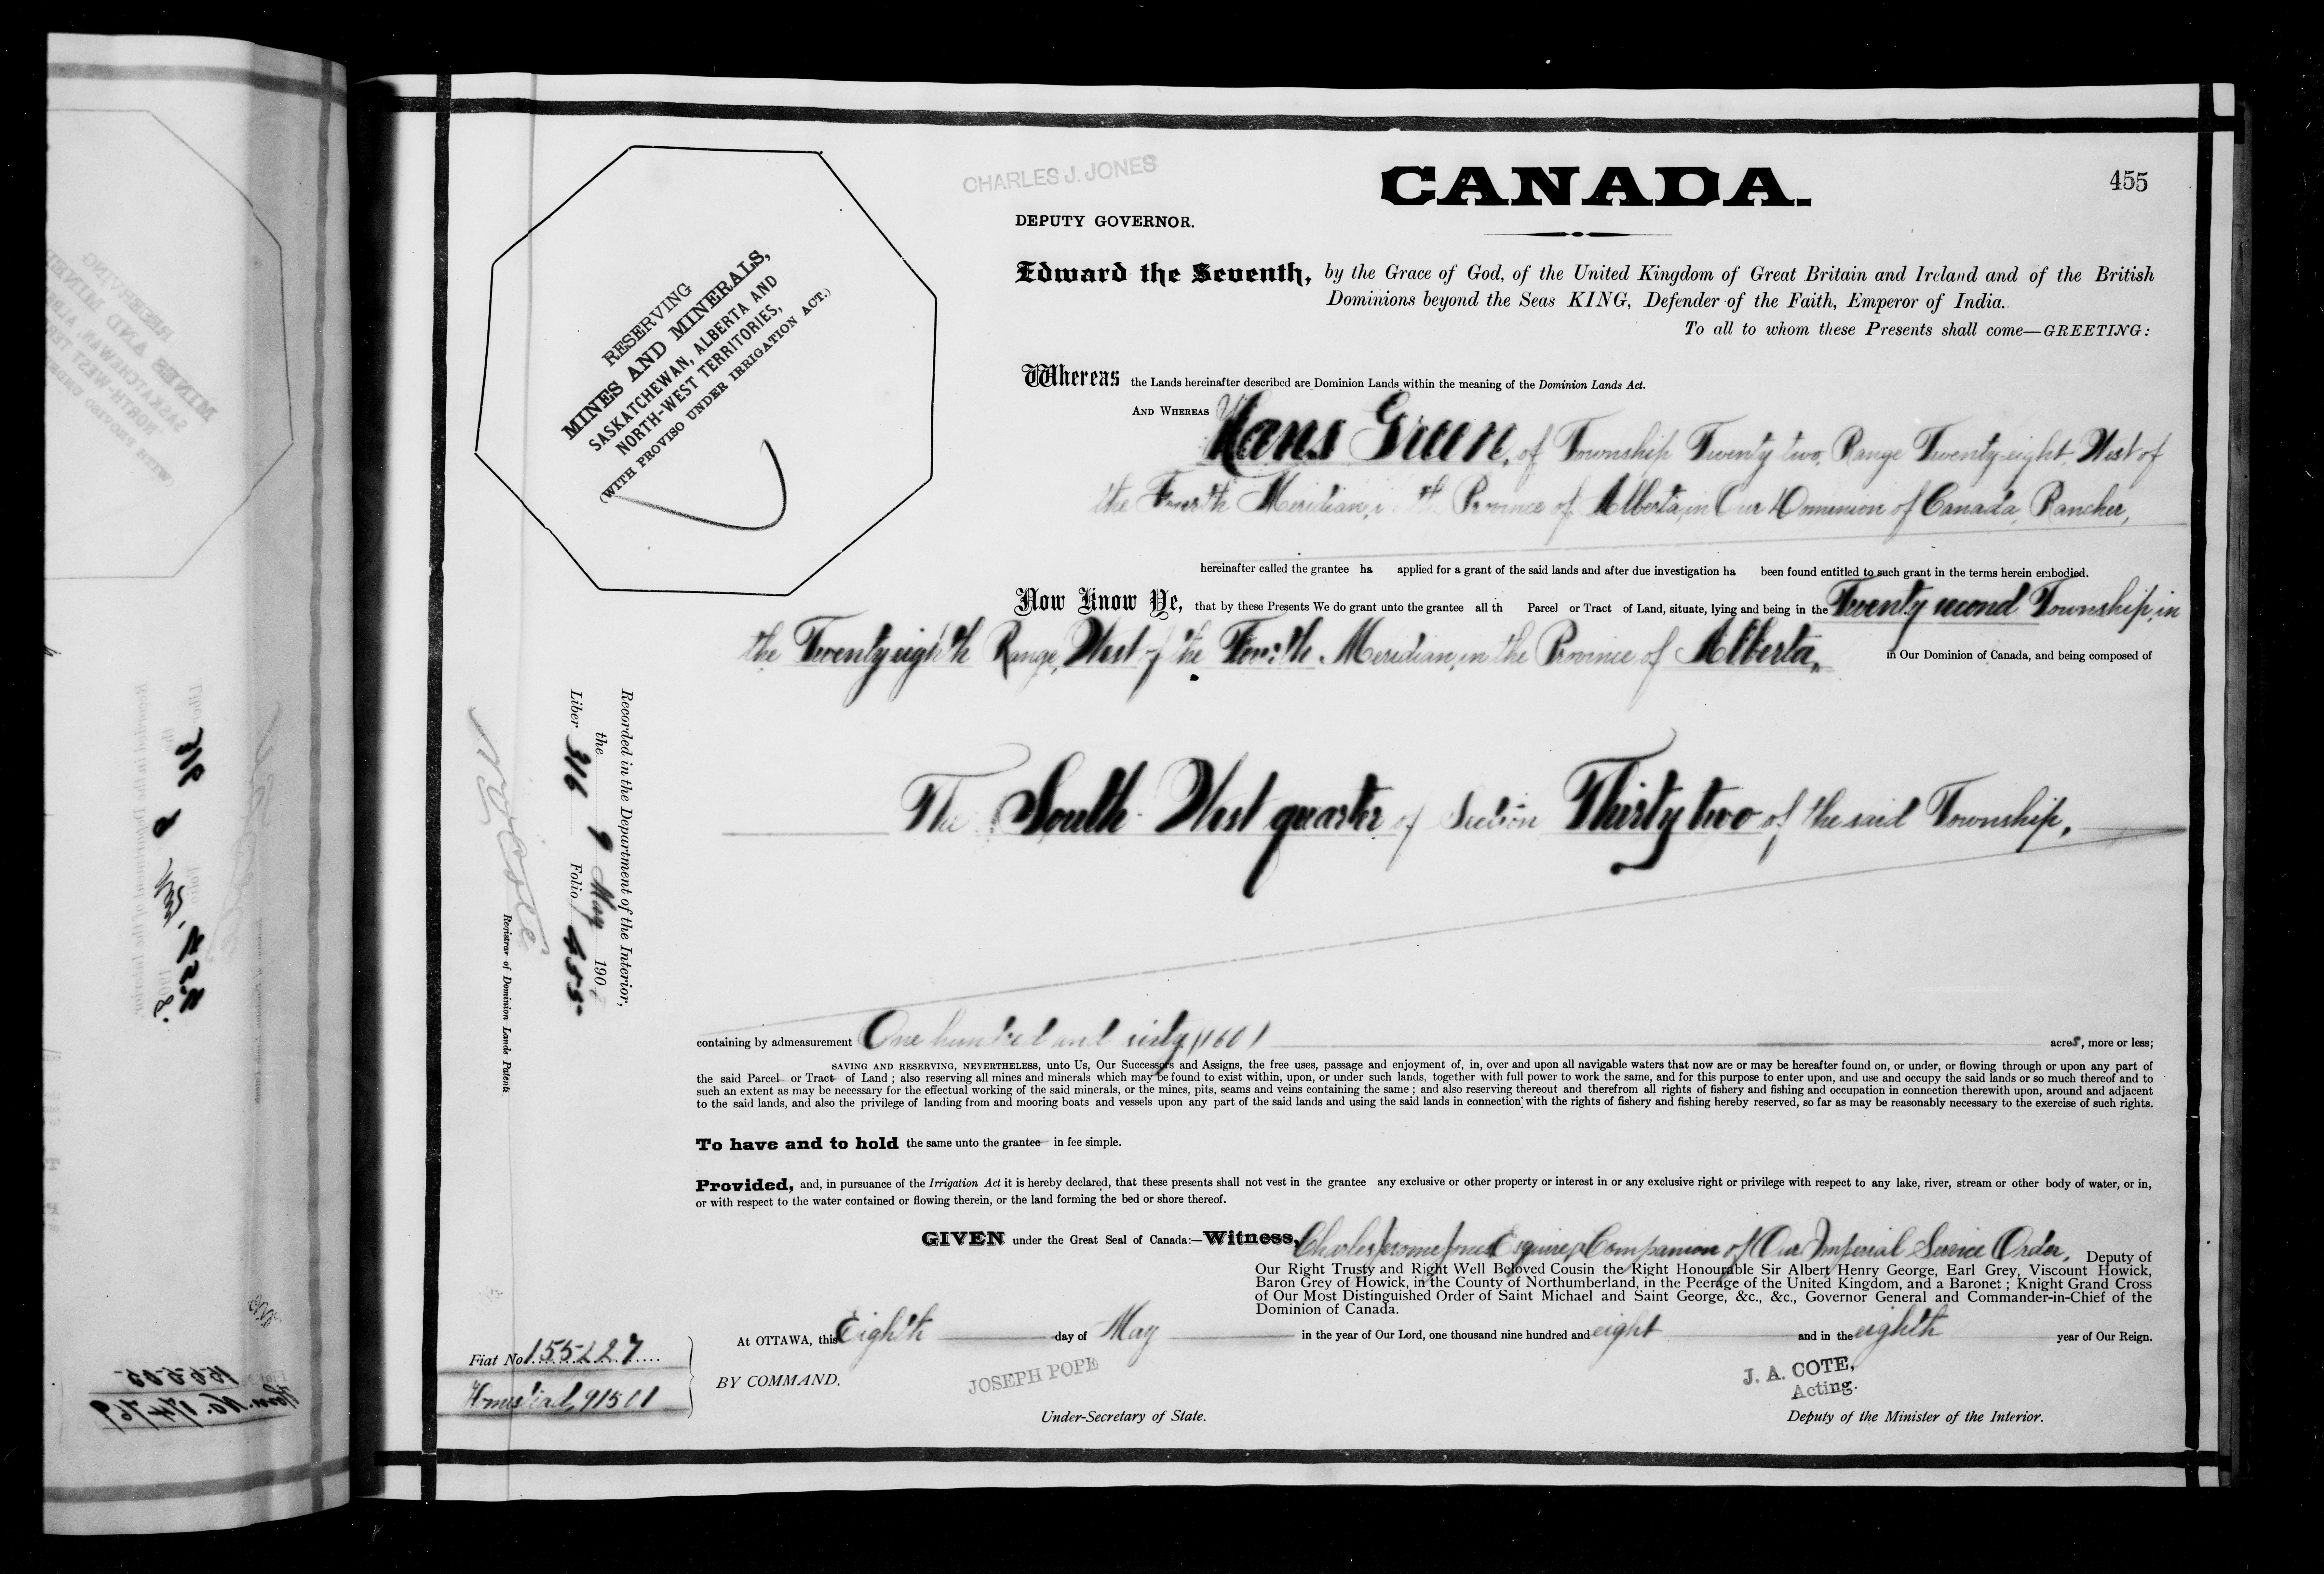 CHARLES J. JONES
CANADA.
455
DEPUTY GOVERNOR.
Edward the Seventh, by the Grace of God, of the United Kingdom of Great Britain and Ireland and of the British
Dominions beyond the Seas KING, Defender of the Faith, Emperor of India.
To all to whom these Presents shall come—GREETING:
RESERVING
MINES AND MINERALS,
SASKATCHEWAN, ALBERTA AND
NORTH-WEST TERRITORIES,
(WITH PROVISO UNDER IRRIGATION ACT.)
Whereas the Lands hereinafter described are Dominion Lands within the meaning of the Dominion Lands Act.
AND WHEREAS Hans Green, of Township Twenty two, Range Twenty-eight, West of
the Fourth Meridian, in the Province of Alberta, in Our Dominion of Canada, Rancher,
hereinafter called the grantee ha applied for a grant of the said lands and after due investigation ha been found entitled to such grant in the terms herein embodied.
Now Know Ye, that by these Presents We do grant unto the grantee all th Parcel or Tract of Land, situate, lying and being in the Twenty second Township, in
the Twenty eighth Range, West of the Fourth Meridian, in the Province of Alberta, in Our Dominion of Canada, and being composed of
The South West quarter of Section Thirty two of the said Township,
Recorded in the Department of the Interior,
the 9 May 190
Liber 316 Folio 455
Registrar of Dominion Lands Patents.
containing by admeasurement One hundred and sixty (160) acres, more or less;
SAVING AND RESERVING, NEVERTHELESS, unto Us, Our Successors and Assigns, the free uses, passage and enjoyment of, in, over and upon all navigable waters that now are or may be hereafter found on, or under, or flowing through or upon any part of
the said Parcel or Tract of Land ; also reserving all mines and minerals which may be found to exist within, upon, or under such lands, together with full power to work the same, and for this purpose to enter upon, and use and occupy the said lands or so much thereof and to
such an extent as may be necessary for the effectual working of the said minerals, or the mines, pits, seams and veins containing the same ; and also reserving thereout and therefrom all rights of fishery and fishing and occupation in connection therewith upon, around and adjacent
to the said lands, and also the privilege of landing from and mooring boats and vessels upon any part of the said lands and using the said lands in connection with the rights of fishery and fishing hereby reserved, so far as may be reasonably necessary to the exercise of such rights.
To have and to hold the same unto the grantee in fee simple.
Provided, and, in pursuance of the Irrigation Act it is hereby declared, that these presents shall not vest in the grantee any exclusive or other property or interest in or any exclusive right or privilege with respect to any lake, river, stream or other body of water, or in,
or with respect to the water contained or flowing therein, or the land forming the bed or shore thereof.
GIVEN under the Great Seal of Canada:—Witness, Charles Jerome Jones Esquire, a Companion of Our Imperial Service Order, Deputy of
Our Right Trusty and Right Well Beloved Cousin the Right Honourable Sir Albert Henry George, Earl Grey, Viscount Howick,
Baron Grey of Howick, in the County of Northumberland, in the Peerage of the United Kingdom, and a Baronet ; Knight Grand Cross
of Our Most Distinguished Order of Saint Michael and Saint George, &c., &c., Governor General and Commander-in-Chief of the
Dominion of Canada.
At OTTAWA, this Eighth day of May in the year of Our Lord, one thousand nine hundred and eight and in the eighth year of Our Reign.
Fiat No 155227
Homestead, 91501
BY COMMAND.
JOSEPH POPE
Under-Secretary of State.
J. A. COTE,
Acting.
Deputy of the Minister of the Interior.